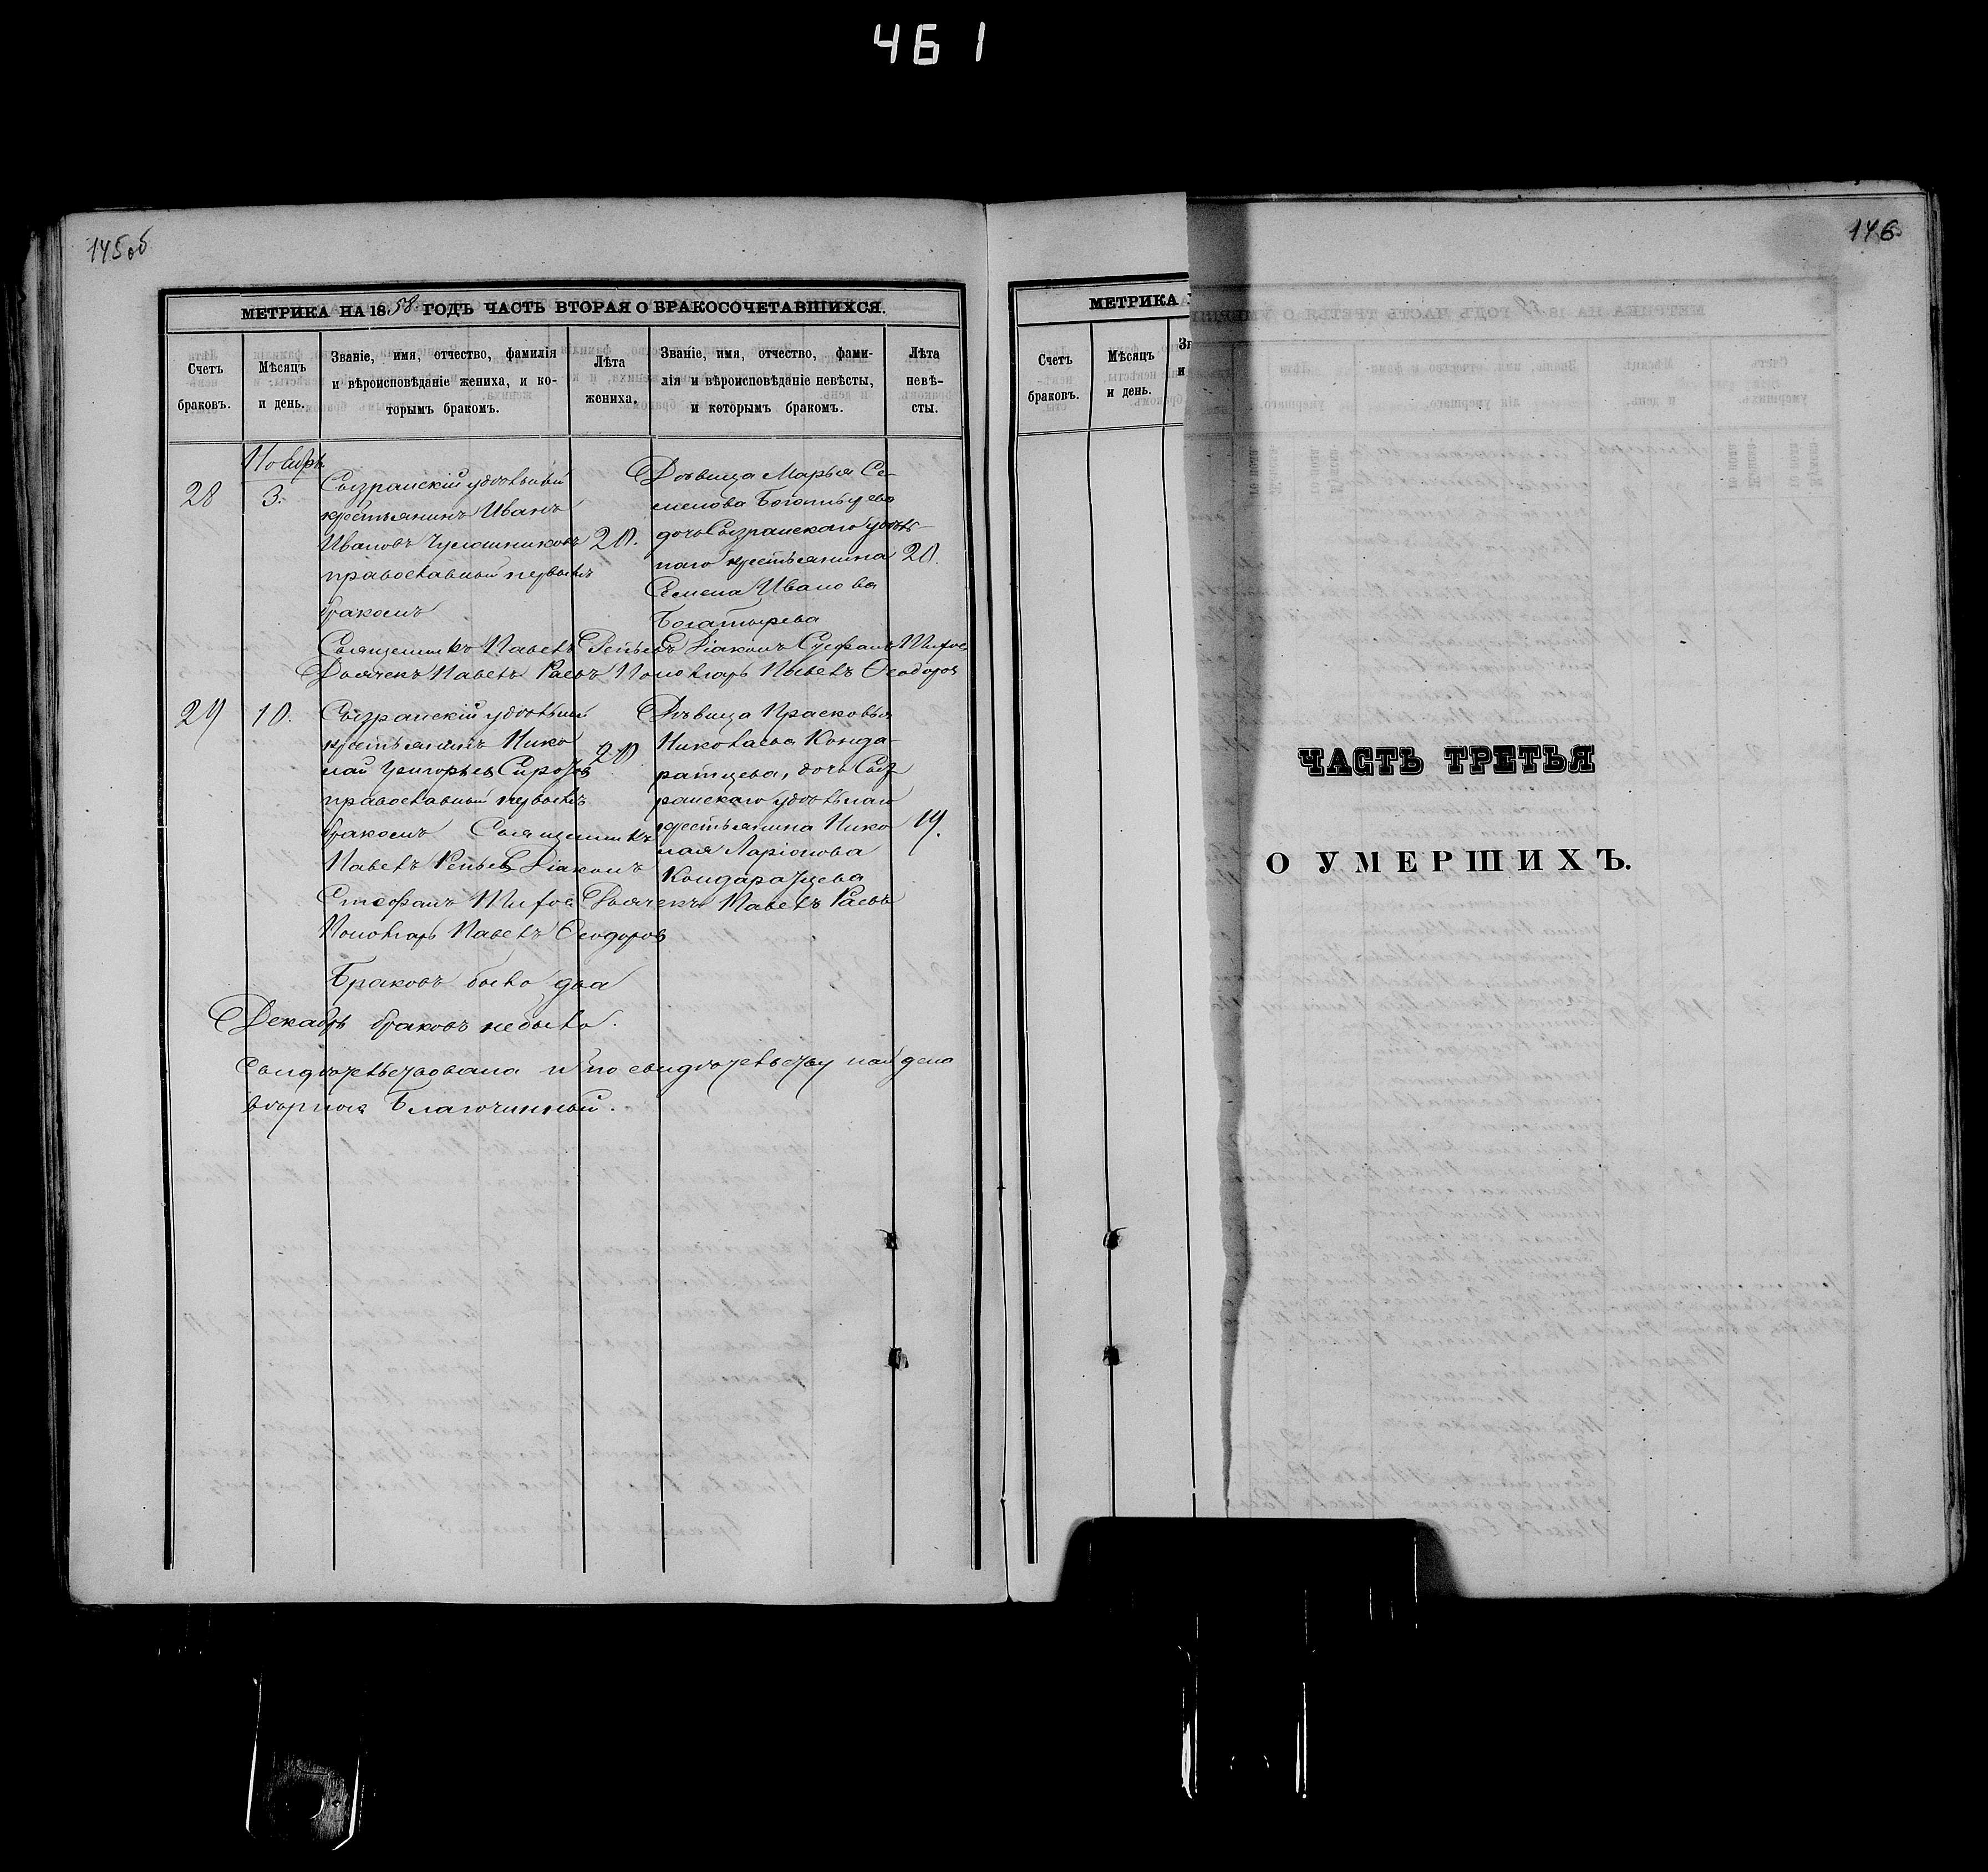 461
145об
146
МЕТРИКА НА 1858 ГОДЪ ЧАСТЬ ВТОРАЯ О БРАКОСОЧЕТАВШИХСЯ.
Счетъ браковъ.
Мѣсяцъ и день.
Званіе, имя, отчество, фамилія
и вѣроисповѣданіе жениха, и ко-
торымъ бракомъ.
Лѣта жениха.
Званіе, имя, отчество, фами-
лія и вѣроисповѣданіе невѣсты,
и которымъ бракомъ.
Лѣта невѣ-
сты.
Ноябрь
28
3.
Сызранскій удѣльный
крестьянинъ Иванъ
Ивановъ
православный первымъ
бракомъ
20.
Дѣвица Марья Се-
менова Богатырева
дочь Сызранскаго удѣль-
наго крестьянина
Семена Иванова
Богатырева
20.
Священникъ Павелъ Репьевъ Діаконъ Стефанъ
Дьячекъ Павелъ Раевъ Пономарь Павелъ Ѳеодоровъ
29
10.
Сызранскій удѣльный
крестьянинъ Нико
лай Григорьевъ
православный первымъ
бракомъ Священникъ
Павелъ Репьевъ Діаконъ
20
Дѣвица Прасковья
Николаева Конда-
ратцева, дочь Сыз
ранскаго удѣльнаго
крестьянина Нико
лая Ларіонова
Кондаратцева
19.
Стефанъ Дьячекъ Павелъ Раевъ
Пономарь Павелъ Ѳеодоровъ
Браковъ было два
Декабрь браковъ небыло.
Свидѣтельствована и по свидѣтельству найдена
вѣрною Благочинный.
МЕТРИКА
Счетъ браковъ.
Мѣсяцъ и день.
Зв
и
ЧАСТЬ ТРЕТЬЯ
О УМЕРШИХЪ.